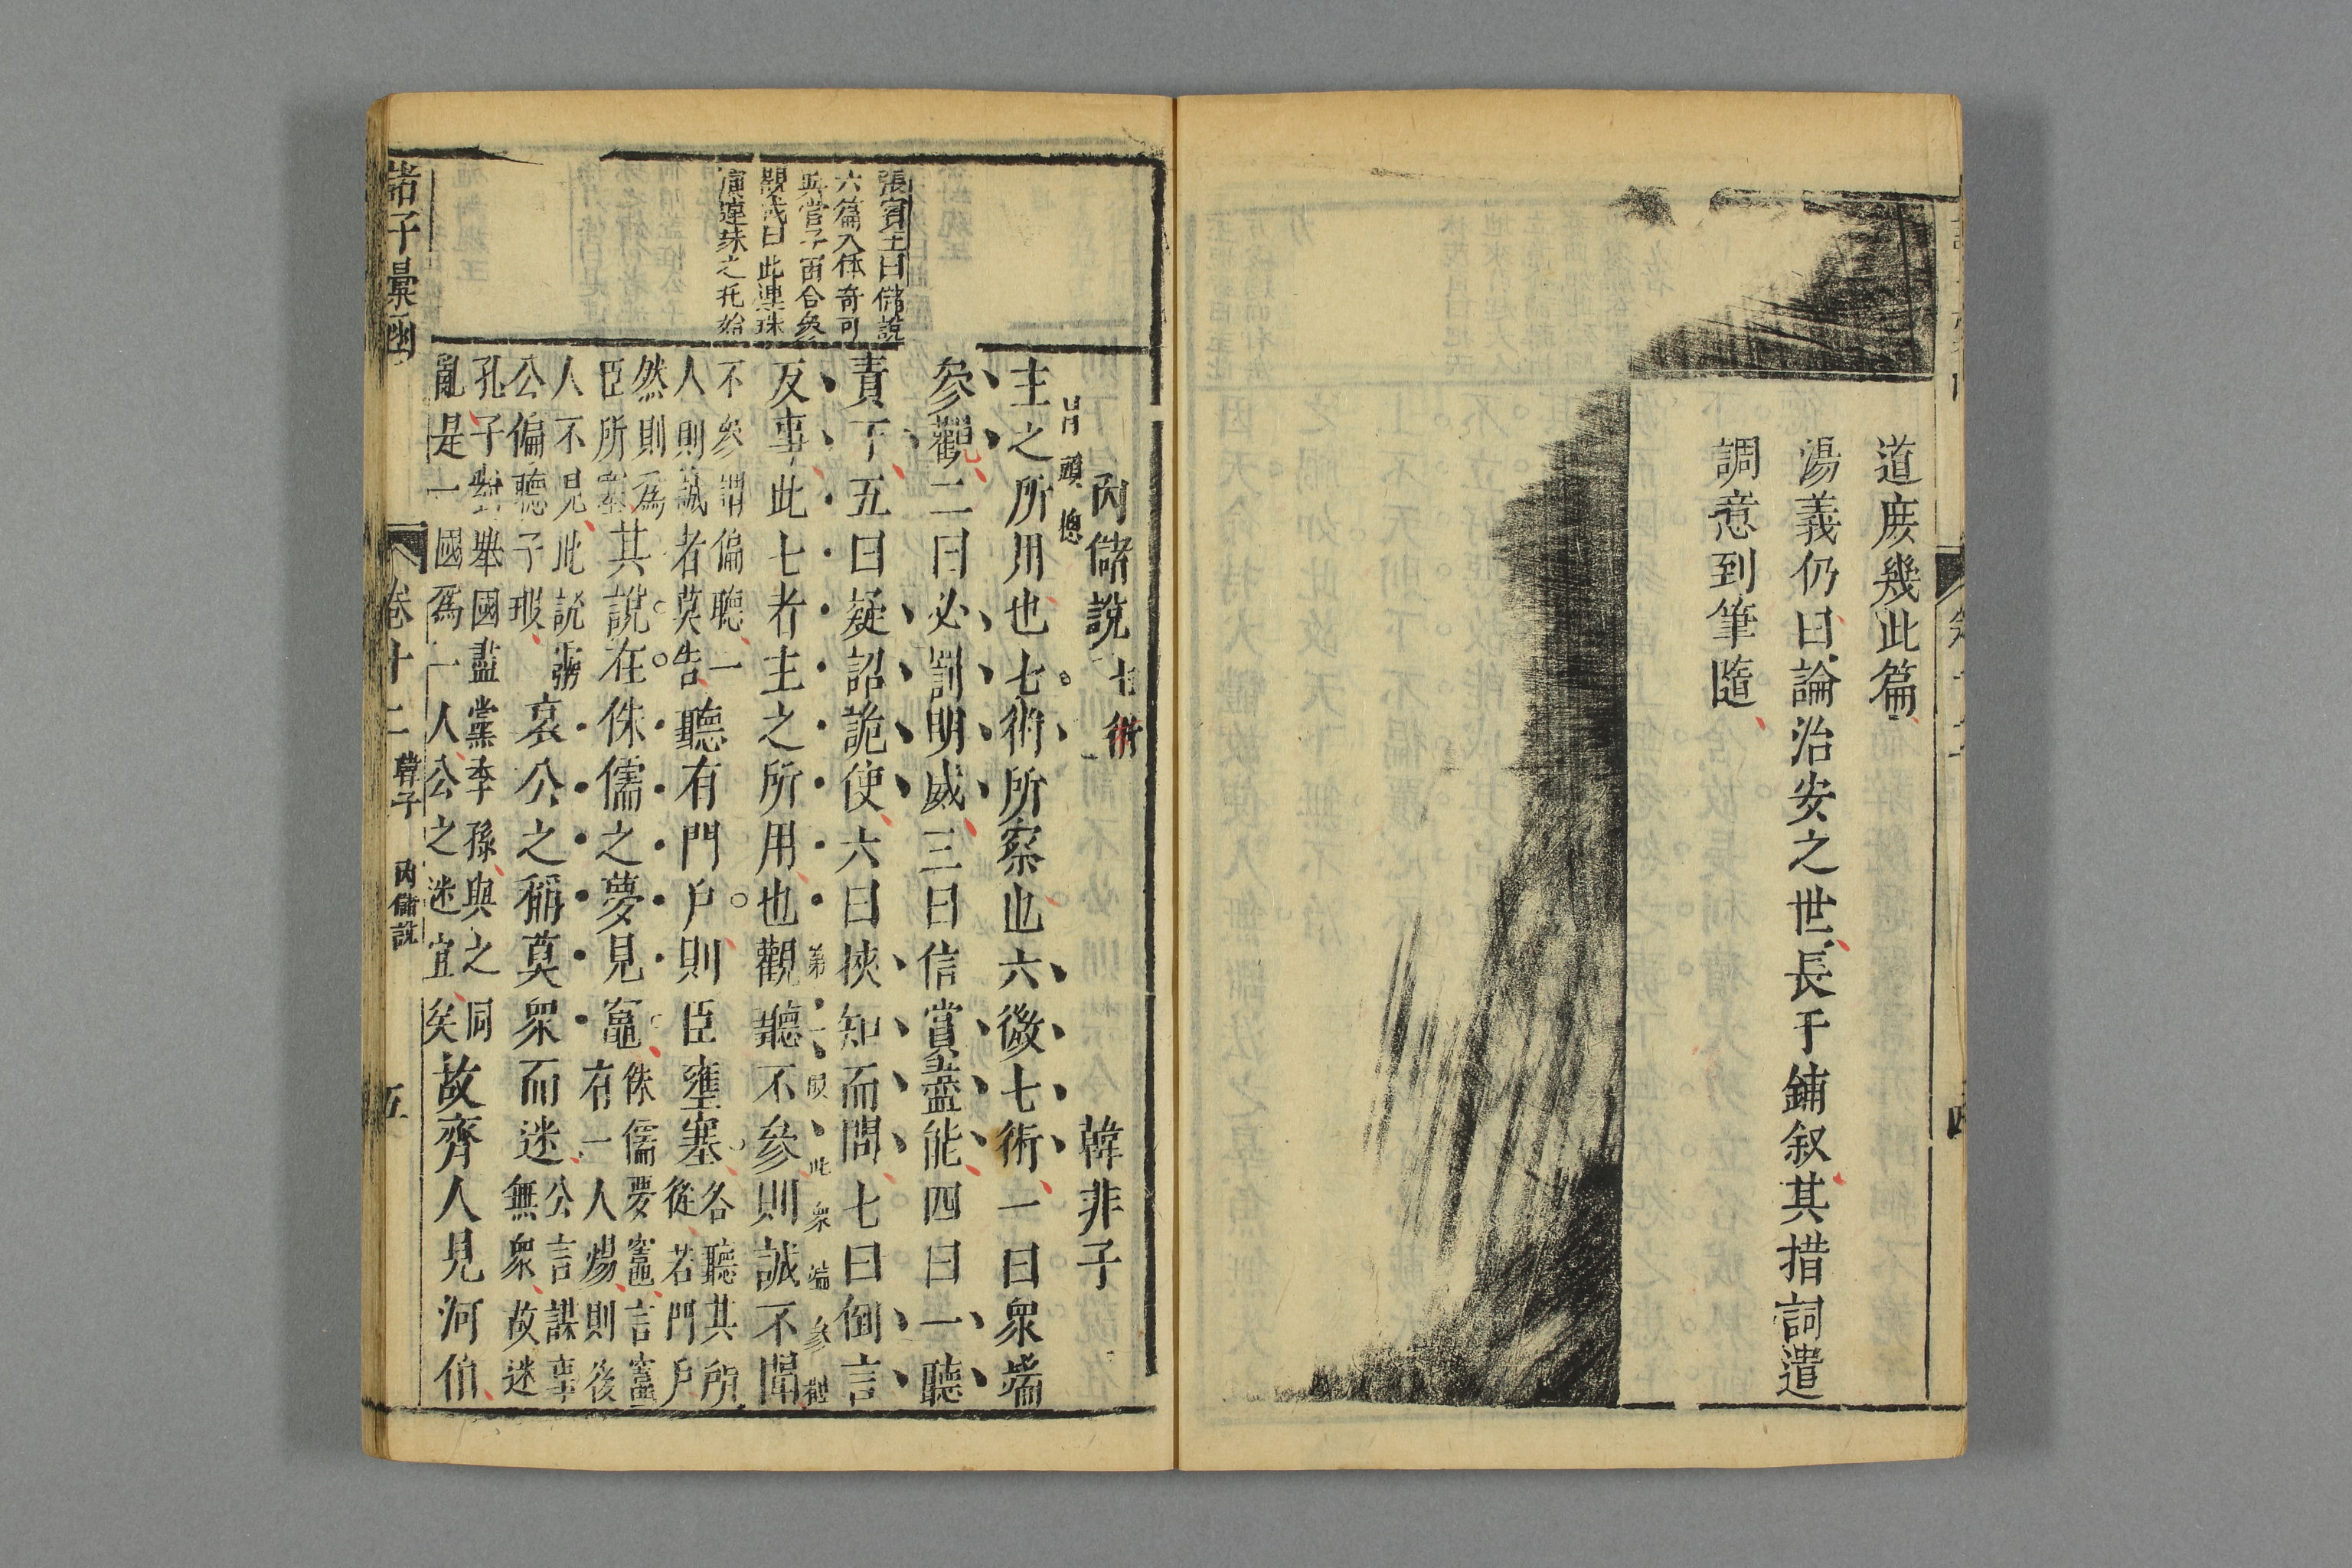 道庻幾此篇
湯義仍曰論治安之世長于鋪叙其措詞遣
調意到筆隨
四
張賓王曰儲說
六篇入体奇可
與管子百合參
觀或曰此連珠
演連珠之托始
內儲說 七術 韓非子
冒頭總
主之所用也七術所察也六微七術一曰衆端
參觀二曰必罰明威三曰信賞盡能四曰一聽
責下五曰疑詔詭使六曰挾知而問七曰倒言
反事此七者主之所用也觀聽不參則誠不聞
第一段此衆端參觀
不參謂偏聽一
人則誠者莫告聽有門戶則臣壅塞各聽其所
從若門戶
然則為
臣所塞其說在侏儒之夢見竈侏儒夢竈言竈
有一人煬則後
人不見此說張
公偏聽子瑕哀公之稱莫衆而迷公言謀事
無衆故迷
孔子對舉國盡黨季孫與之同
亂是一國為一人公之迷宜矣故齊人見河伯
諸子彙函
卷十二 韓子 內儲說
五